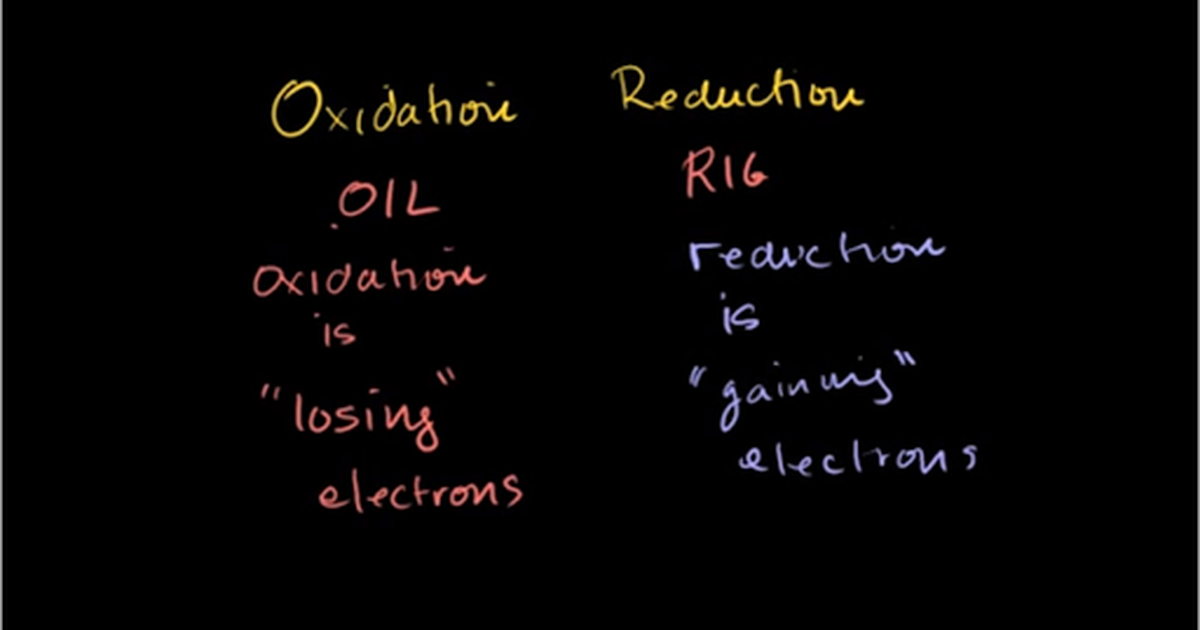 Oxidation
OIL
oxidation
is
"losing"
electrons
Reduction
RIG
reduction
is
"gaining"
electrons